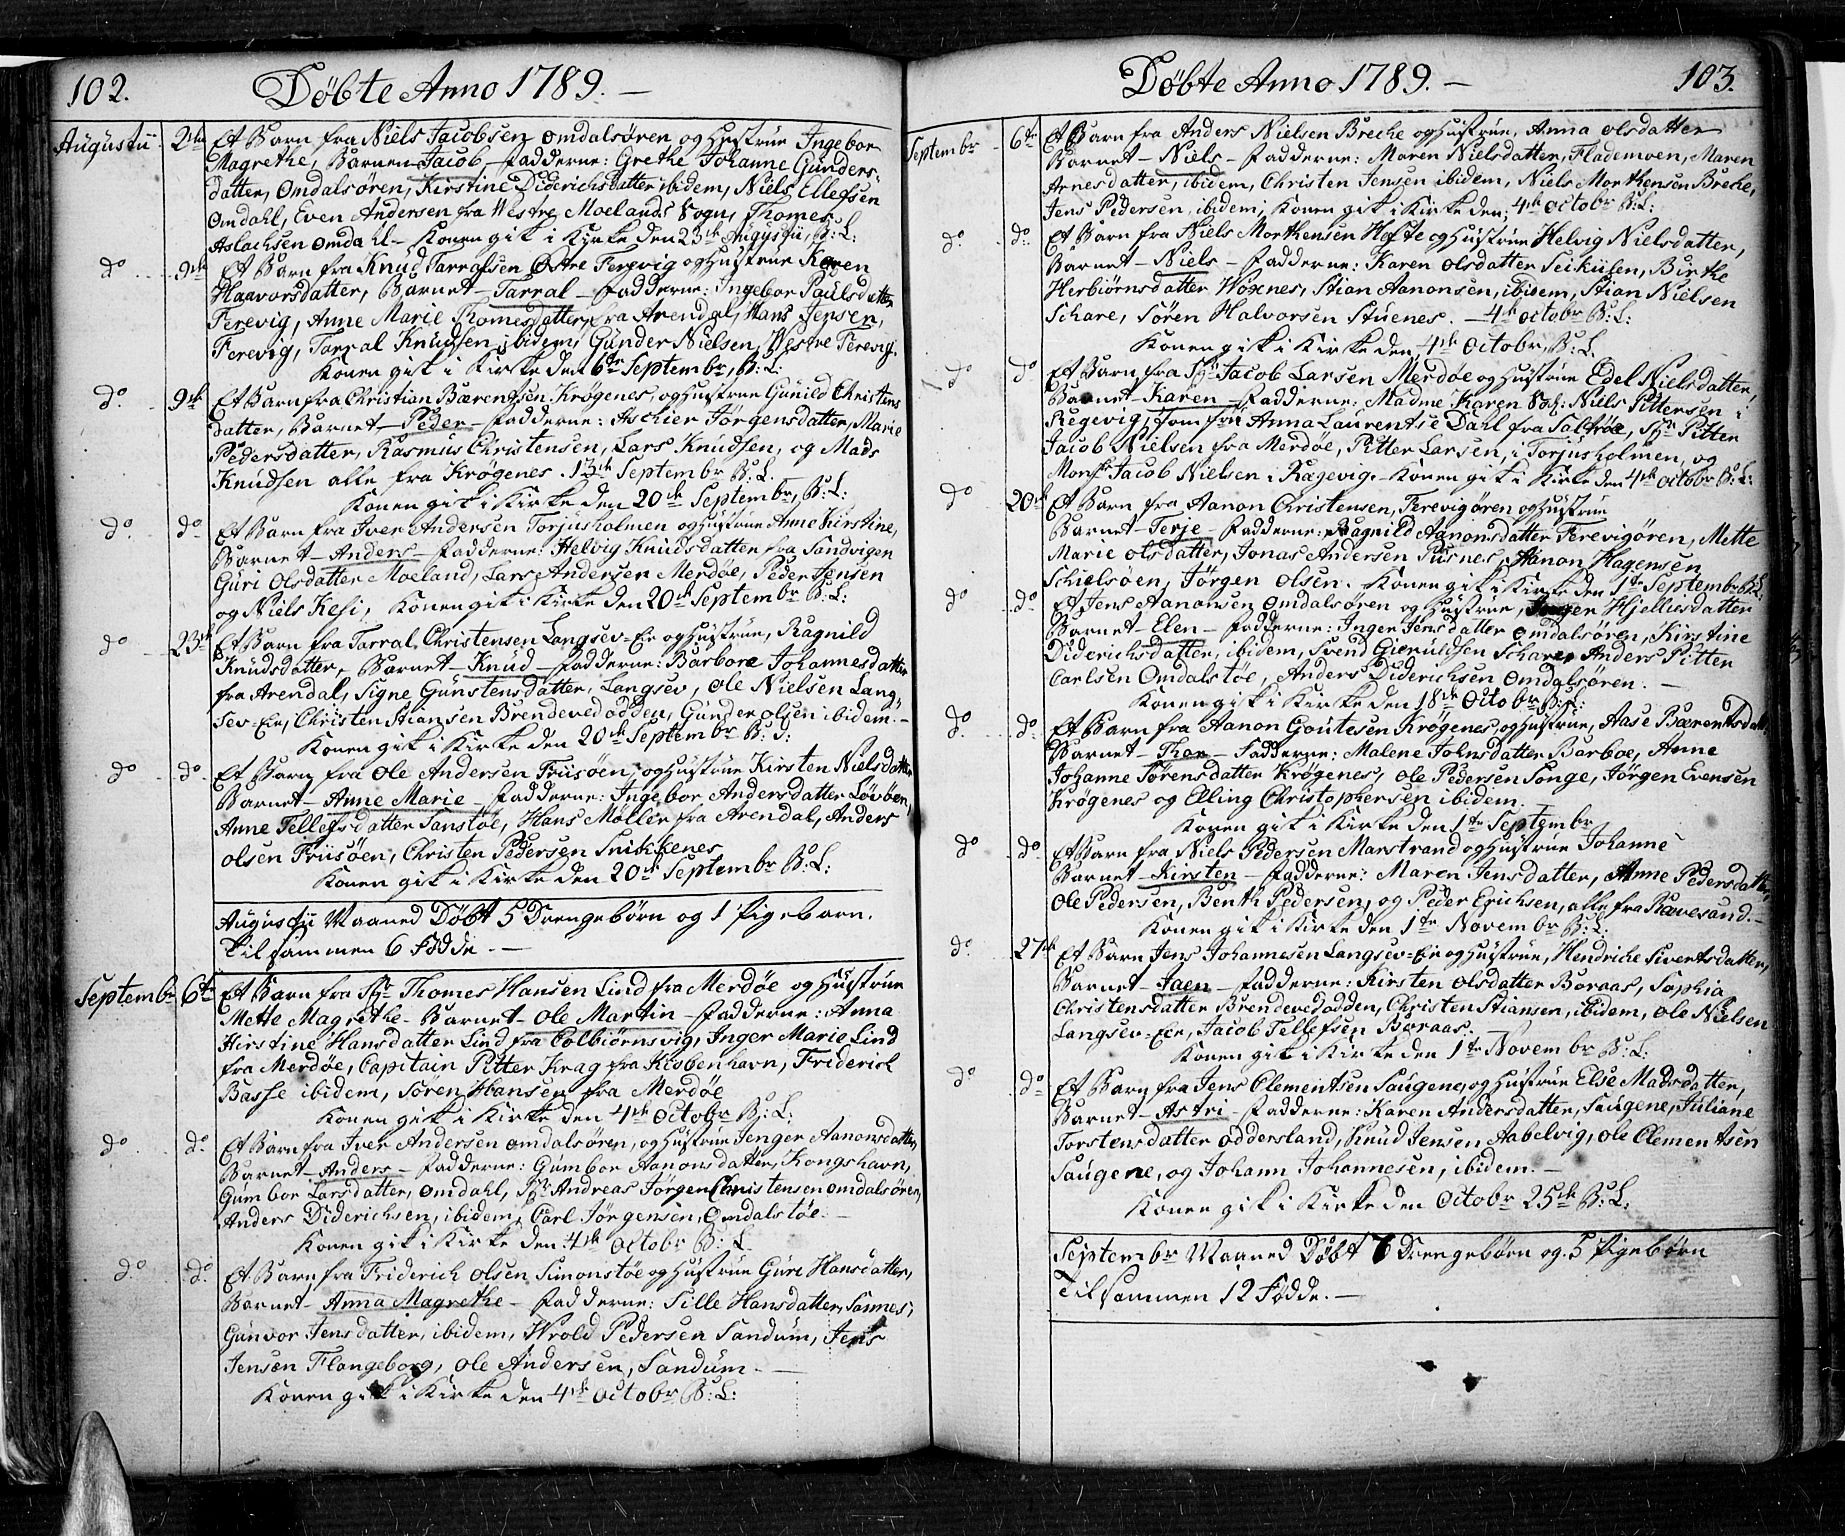 102.
Döbte Anno 1789. —
Augustii 2den Et Barn fra Niels Jacobsen Omdalsøren og Hustrue Ingebor
Magrethe, Barnet Jacob - Fadderne: Grethe Johanne Gunders-
datter, Omdalsøren, Kirstine Diderichsdatter ibidem, Niels Ellefsen
Omdahl, Even Andersen fra Westre Moelands Sogn, Thomes
Aslachsen Omdahl - Konen gik i Kirke den 23de Augustii, B: L:
do 9de Et Barn fra Knud Tarralsen Østre Ferevig og Hustrue Karen
Haavorsdatter, Barnet - Tarral - Fadderne: Ingebor Paulsdatter
Ferevig, Anne Marie Thomesdatter, fra Arendal, Hans Jensen,
Ferevig, Tarral Knudsen, ibidem, Gunder Nielsen, Westre Ferevig.
Konen gik i Kirke den 6te Septembr, B: L:
do 9de Et Barn fra Christian Bærentsen Krøgenes, og Hustrue Gunild Christens
datter, Barnet - Peder - Fadderne: Aschier Jörgensdatter, Marie
Pedersdatter, Rasmus Christensen, Lars Knudsen, og Mads
Knudsen alle fra Krøgenes. 13de Septembr B: L.
Konen gik i Kirke den 20de Septembr, B: L:
do do Et Barn fra Iver Andersen Torjusholmen og Hustrue Anne Kirstine,
Barnet - Anders - Fadderne: Helvig Knudsdatter fra Sandvigen
Guri Olsdatter Moeland, Lars Andersen Merdøe, Peder Jensen
og Niels Kesi, Konen gik i Kirke den 20de Septembr B: L:
do 23de Et Barn fra Tarral Christensen Langsev-Eie og Hustrue, Ragnild
Knudsdatter, Barnet - Knud - Fadderne: Barbore Johannesdatter
fra Arendal, Signe Gunstensdatter, Langsev, Ole Nielsen Lang-
sev-Eie, Christen Stiansen Brendevedodden, Gunder Olsen ibidem: -
Konen gik i Kirke den 20de Septembr B: L:
do do Et Barn fra Ole Andersen Friisöen, og Hustrue Kirsten Nielsdatter
Barnet - Anne Marie - Fadderne: Ingebor Andersdatter Løvöen,
Anne Tellefsdatter Sanstøe, Hans Møller fra Arendal, Anders
Olsen Friisöen, Christen Pedersen Snikkenes
Konen gik i Kirke den 20de Septembr B: L:
Augustii Maaned Döbt 5 Drengebörn og 1 Pigebarn.
Tilsammen 6 Födde. -
Septembr 6te Et Barn fra Sr Thomes Hansen Lind fra Merdøe og Hustrue
Mette Magrethe - Barnet - Ole Martin - Fadderne: Anna
Kirstine Hansdatter Lind fra Colbiörnsvig, Inger Marie Lind
fra Merdøe, Capitain Pitter Krag fra Kiøbenhavn, Friderich
Basse ibidem, Sören Hansen fra Merdøe
Konen gik i Kirke den 4de Octobr B: L:
do do Et Barn fra Iver Andersen Omdalsøren, og Hustrue Jenger Aanonsdatter,
Barnet - Anders - Fadderne: Gumbor Aanonsdatter, Kongshavn,
Gumbor Larsdatter, Omdahl, Sr Andreas Jörgen Christensen Omdalsøren,
Anders Diderichsen, ibidem, Carl Jörgensen, Omdalstøe. -
Konen gik i Kirke den 4de Octobr B: L
do do Et Barn fra Friderich Olsen Simonstøe og Hustrue Guri Hansdatter,
Barnet - Anna Magrethe - Fadderne: Sille Hansdatter, Sannes,
Gunvor Jensdatter, ibidem, Wrold Pedersen Sandum, Jens
Jensen Flangeborg, Ole Andersen, Sandum -
Konen gik i Kirke den 4de Octobr B: L:
Döbte Anno 1789. —
103.
Septembr 6te Et Barn fra Anders Nielsen Breche og Hustrue, Anna Olsdatter
Barnet - Niels - Fadderne: Maren Nielsdatter, Flademoen, Maren
Arnesdatter, ibidem, Christen Jensen ibidem, Niels Morthensen Breche,
Jens Pedersen, ibidem, Konen gik i Kirke den 4de Octobr B: L:
do do Et Barn fra Niels Morthensen Hofte og Hustrue Helvig Nielsdatter,
Barnet - Niels - Fadderne: Karen Olsdatter Seikusen, Birthe
Herbiörnsdatter Woxenes, Stian Aanonsen, ibidem, Stian Nielsen
Schare, Sören Halvorsen Stuenes. - 4de Octobr B: L:
Konen gik i Kirke den 4de Octobr, B: L.
do do Et Barn fra Sr Jacob Larsen Merdøe og Hustrue Edel Nielsdatter,
Barnet - Karen - Fadderne: Madme Karen Sal: Niels Pittersen i
Regevig, Jomfru Anna Laurentse Dahl fra Saltrøe, Sr Pitter
Jacob Nielsen fra Merdøe, Pitter Larsen, i Torjusholmen, og
Monsr Jacob Nielsen i Rægevig. - Konen gik i Kirke den 4de Octobr B: L:
do 20de Et Barn fra Aanon Christensen, Ferevigøren og Hustrue
Barnet - Terje - Fadderne: Ragnild Aanonsdatter Ferevigøren, Mette
Marie Olsdatter, Jonas Andersen Pusnes, Aanon Hagensen
Schielsøen, Jörgen Olsen. Konen gik i Kirke den 1te Septembr B: L:
do do Et Jens Aanonsen Omdalsøren og Hustrue, Inger Hjelliesdatter
Barnet - Elen - Fadderne: Inger Jensdatter Omdalsøren, Kirstine
Diderichsdatter, ibidem, Svend Gierulfsen Schare, Anders Pitter
Carlsen Omdalstøe, Anders Diderichsen Omdalsøren. -
Konen gik i Kirke den 18de Octobr B: L:
do do Et Barn fra Aanon Goutesen Krøgenes, og Hustrue, Aase Bærentsdatter
Barnet - Thor - Fadderne: Malene Johnsdatter Barboe, Anne
Johanne Sörensdatter Krøgenes, Ole Pedersen Songe, Jörgen Evensen
Krøgenes og Elling Christophersen ibidem.
Konen gik i Kirke den 1te Septembr
do do Et Barn fra Niels Pedersen Marstrand og Hustrue Johanne
Barnet - Kirsten - Fadderne: Maren Jensdatter, Anne Pedersdatter,
Ole Pedersen, Benth Pedersen, og Peder Erichsen, alle fra Rævesand. -
Konen gik i Kirke den 1te Novembr B: L:
do 27de Et Barn Jens Johannesen Langsev-Eie og Hustrue, Hendriche Sivertsdatter,
Barnet - Jaen - Fadderne: Kirsten Olsdatter Boraas, Sophia
Christensdatter Brendevedodden, Christen Stiansen, ibidem, Ole Nielsen
Langsev-Eie, Jacob Tellefsen Boraas.
Konen gik i Kirke den 1te Novembr B: L:
do do Et Barn fra Jens Clementsen Saugene, og Hustrue Else Madsdatter,
Barnet - Astri - Fadderne: Karen Andersdatter, Saugene, Juliane
Torstensdatter Oddersland, Knud Jensen Aabelvig, Ole Clementsen
Saugene, og Johann Johannesen, ibidem. -
Konen gik i Kirke den Octobr 25de B: L:
Septembr Maaned Döbt 7 Drengebörn og 5 Pigebörn
Tilsammen 12 Födde. —